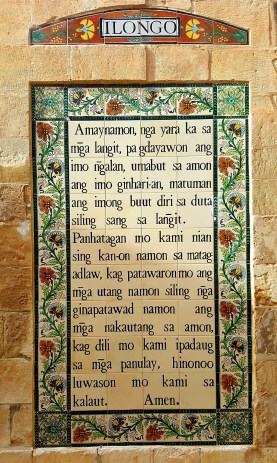 ILONGO
Amaynamon, nga yara ka sa
mg̃a langit, pagdayawon ang
imo ngalan, umabut sa amon
ang imo ginhari-an, matuman
ang imong buut diri sa duta
siling sang sa lang̃it.
Panhatagan mo kami nian
sing kan-on namon sa matag-
adlaw, kag patawaron mo ang
mg̃a utang namon siling ng̃a
ginapatawad namon ang
mg̃a nakautang sa amon,
kag dili mo kami ipadaug
sa mg̃a panulay, hinonoo
luwason mo kami sa
kalaut. Amen.